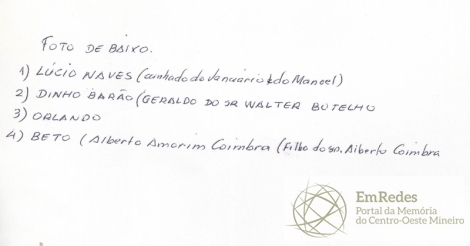 FOTO DE BAIXO.
1) LÚCIO NAVES (cunhado do Januário & do Manoel)
2) DINHO BARÃO (GERALDO DO SR WALTER BOTELHO
3) ORLANDO
4) BETO (Alberto Amorim Coimbra (Filho do sr. Alberto Coimbra
EmRedes
Portal da Memória
do Centro-Oeste Mineiro